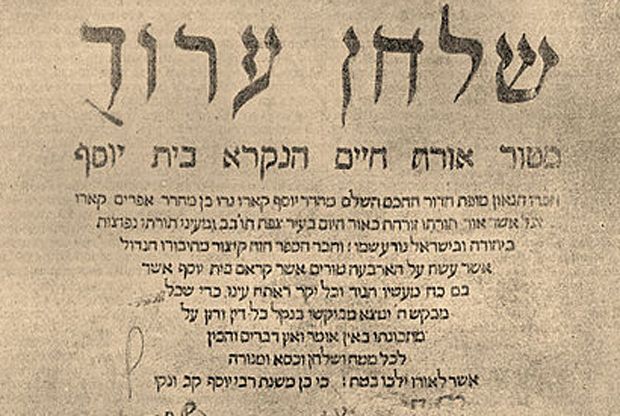 שלחן ערוך
מטור אורח חיים הנקרא בית יוסף
חברו הגאון מופת הדור החכם השלם מהרר יוסף קארו נרו בן מהרר אפרים קארו
זצל אשר אור תורתו זורחת כאור היום בעיר צפת תו'ב'ב' ומעיני תורתו נפוצות
ביהודה ובישראל נודע שמו : וחבר הספר הזה קיצור מחיבורו הגדול
אשר עשה על הארבעה טורים אשר קראם בית יוסף אשר
בם כח מעשיו הגיד וכל יקר ראתה עינו כדי שכל
מבקש ה' ימצא מבוקשו בנקל כל דין ודין על
מתכונתו באין אומר ואין דברים והכין
לכל מטה ושלחן וכסא ומנורה
אשר לאורו ילכו בטח : כי כן משנת רבי יוסף קב ונקי